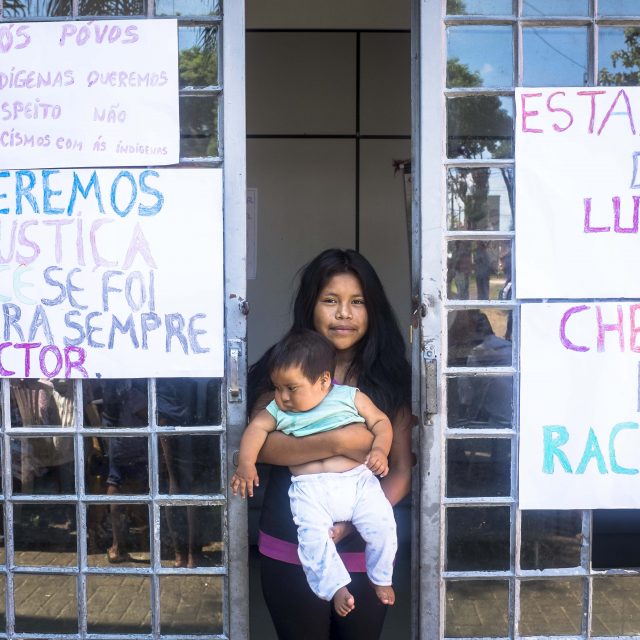 ÓS PÓVOS
DÍGENAS QUEREMOS
SPEITO NÃO
CISMOS COM ÁS INDÍGENAS
EREMOS
USTIÇA
CE SE FOI
RA SEMPRE
CTOR.
ESTA
D
LU
CHE
RAC